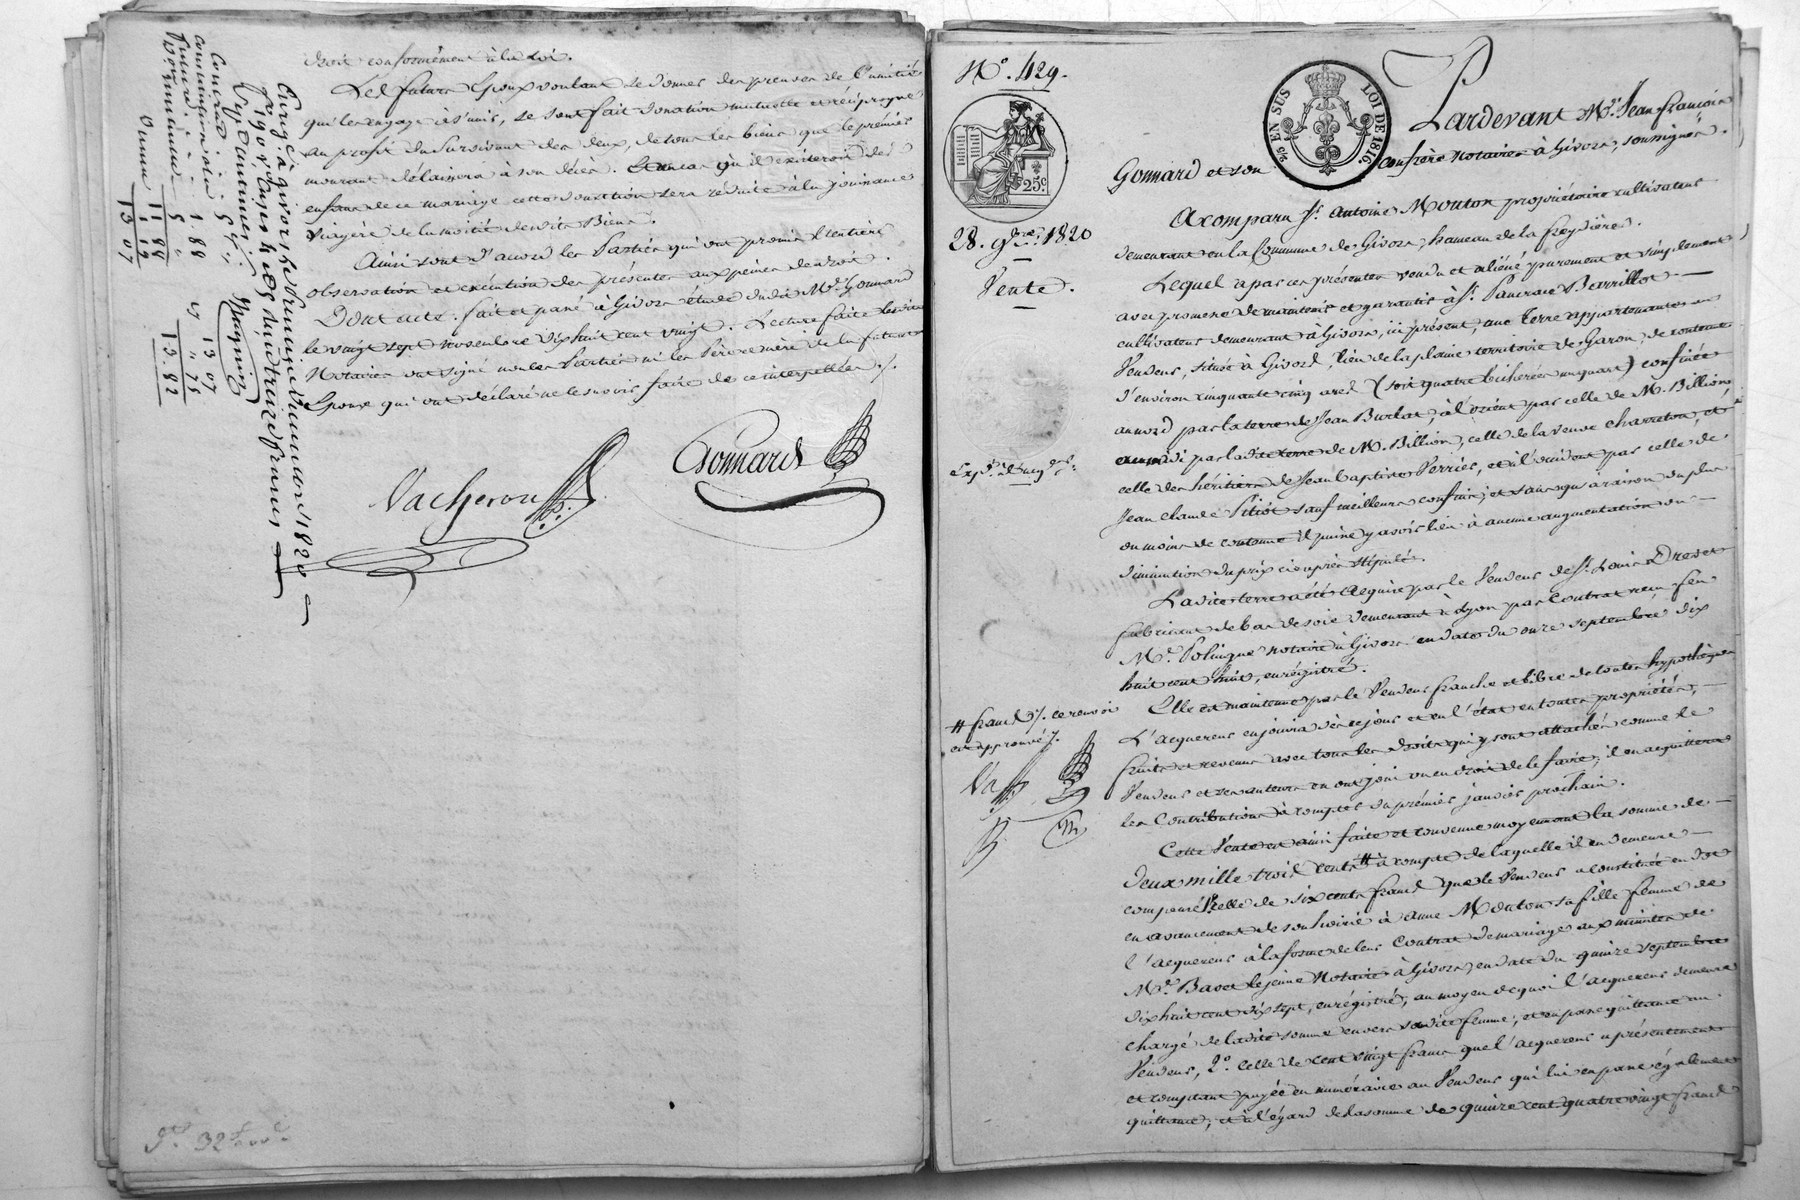 droit conformément à la Loi.
Les futurs Epoux voulant se donner des preuves de l'amitié
qui les engage à s'unir, se sont fait donation mutuelle et réciproque
au profit du survivant des deux, de tous les biens que le premier
mourant délaissera à son décès. Et au cas qu'il existeroit des
enfans de ce mariage cette donation sera réduite à la jouissance
viagère de la moitié desdits Biens.
Ainsi sont d'accord les Parties qui ont promis l'entière
observation et exécution des présentes aux peines de droit.
Dont acte. fait et passé à Givors étude dudit Me. Gonnard
le vingt sept novembre dix huit cent vingt. Lecture faite les
Notaires ont signé non les Parties ni les Père et mère de la future
Epouse qui ont déclaré ne le savoir faire de ce interpellés ./.
Vacheron
Gonnard
Enreg. à givors le premier décembre 1820
Reçu cinq francs
13 07
13 07
" 75
13.82
11 88
1 19
13 07
32
No. 429.
25 EN SUS LOI DE 1816
25c
28. 9bre. 1820
Vente.
# francs ./. ce renvoi
est approuvé ./.
Pardevant Me. Jean François
Gonnard et son confrère notaires à Givors, soussignés.
A comparu Sr. Antoine Mouton propriétaire cultivateur
demeurant en la Commune de Givors, hameau de la Freydière.
Lequel a par ces présentes vendu et aliéné purement et simplement
avec promesse de maintenir et garantir à Sr. Pancrace Barrillot
cultivateur demeurant à Givors, ici présent, une Terre appartenante au
Vendeur, située à Givors, lieu de la plaine territoire de Garon, de contenue
d'environ cinquante cinq ares (soit quatre bicherées un quart) confinée
au nord par la terre de Jean Burlat, à l'orient par celle de M. Billion,
au midi par ladite terre de M. Billion, celle de la veuve Charreton, et
celle des héritiers de Jean Baptiste Perrier, et à l'occident par celle de
Jean Claude Pitiot sauf meilleurs confins; et sans qu'à raison du plus
ou moins de contenue il puisse y avoir lieu à aucune augmentation ou
diminution du prix ci après stipulé.
Ladite terre a été acquise par le Vendeur de Sr. Louis Drevet
fabricant de bas de soie demeurant à Lyon par Contrat reçu
Me. Polingue notaire à Givors en date du onze septembre dix
huit cent huit, enrégistré.
Elle est maintenue par le Vendeur franche et libre de toutes hypothèques
L'acquereur en jouira dès ce jour et en l'état en toutes propriétés,
fruits et revenus avec tous les droits qui y sont attachés comme le
Vendeur et ses auteurs en ont joui ou eu droit de le faire; il en acquittera
les Contributions à compter du premier janvier prochain.
Cette Vente est ainsi faite et convenue moyennant la somme de
deux mille trois cents # à compte de laquelle il en demeure
compensé 1o. celle de six cents francs que le Vendeur a constituée en dot
en avancement de son hoirie à anne Mouton sa fille femme de
l'acquereur à la forme de leur Contrat de mariage aux minutes de
Me. Baset le jeune Notaire à Givors, en date du quinze septembre
dix huit cent dix sept, enrégistré, au moyen de quoi l'acquereur demeure
chargé de ladite somme envers sadite femme; et en passe quittance au
Vendeur, 2o. Celle de cent vingt francs que l'acquereur a présentement
et comptant payée en numéraire au Vendeur qui lui en passe également
quittance; et à l'égard de la somme de quinze cent quatre vingt francs